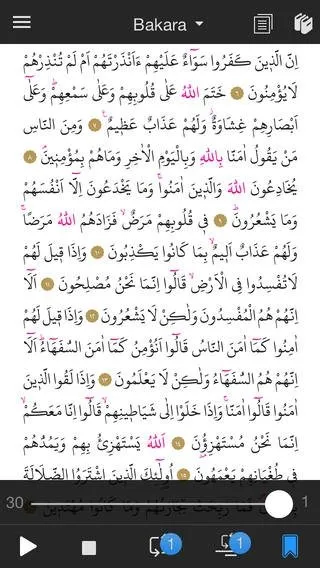 Bakara
اِنَّ الَّذ۪ينَ كَفَرُوا سَوَٓاءٌ عَلَيْهِمْ ءَاَنْذَرْتَهُمْ اَمْ لَمْ تُنْذِرْهُمْ
لَا يُؤْمِنُونَ ﴿٦﴾ خَتَمَ اللّٰهُ عَلٰى قُلُوبِهِمْ وَعَلٰى سَمْعِهِمْۜ وَعَلٰٓى
اَبْصَارِهِمْ غِشَاوَةٌۘ وَلَهُمْ عَذَابٌ عَظ۪يمٌ۟ ﴿٧﴾ وَمِنَ النَّاسِ
مَنْ يَقُولُ اٰمَنَّا بِاللّٰهِ وَبِالْيَوْمِ الْاٰخِرِ وَمَاهُمْ بِمُؤْمِن۪ينَۢ ﴿٨﴾
يُخَادِعُونَ اللّٰهَ وَالَّذ۪ينَ اٰمَنُواۚ وَمَا يَخْدَعُونَ اِلَّٓا اَنْفُسَهُمْ
وَمَا يَشْعُرُونَۜ ﴿٩﴾ ف۪ي قُلُوبِهِمْ مَرَضٌۙ فَزَادَهُمُ اللّٰهُ مَرَضًاۚ
وَلَهُمْ عَذَابٌ اَل۪يمٌۙ بِمَا كَانُوا يَكْذِبُونَ ﴿١٠﴾ وَاِذَا ق۪يلَ لَهُمْ
لَا تُفْسِدُوا فِي الْاَرْضِۙ قَالُٓوا اِنَّمَا نَحْنُ مُصْلِحُونَ ﴿١١﴾ اَلَٓا
اِنَّهُمْ هُمُ الْمُفْسِدُونَ وَلٰكِنْ لَا يَشْعُرُونَ ﴿١٢﴾ وَاِذَا ق۪يلَ لَهُمْ
اٰمِنُوا كَمَٓا اٰمَنَ النَّاسُ قَالُٓوا اَنُؤْمِنُ كَمَٓا اٰمَنَ السُّفَهَٓاءُۜ اَلَٓا
اِنَّهُمْ هُمُ السُّفَهَٓاءُ وَلٰكِنْ لَا يَعْلَمُونَ ﴿١٣﴾ وَاِذَا لَقُوا الَّذ۪ينَ
اٰمَنُوا قَالُٓوا اٰمَنَّاۚ وَاِذَا خَلَوْا اِلٰى شَيَاط۪ينِهِمْۙ قَالُٓوا اِنَّا مَعَكُمْۙ
اِنَّمَا نَحْنُ مُسْتَهْزِؤُ۫نَ ﴿١٤﴾ اَللّٰهُ يَسْتَهْزِئُ بِهِمْ وَيَمُدُّهُمْ
ف۪ي طُغْيَانِهِمْ يَعْمَهُونَ ﴿١٥﴾ اُو۬لٰٓئِكَ الَّذ۪ينَ اشْتَرَوُا الضَّلَالَةَ
فَمَا رَبِحَتْ تِجَارَتُهُمْ وَمَا كَانُوا مُهْتَد۪ينَ
30
1
1